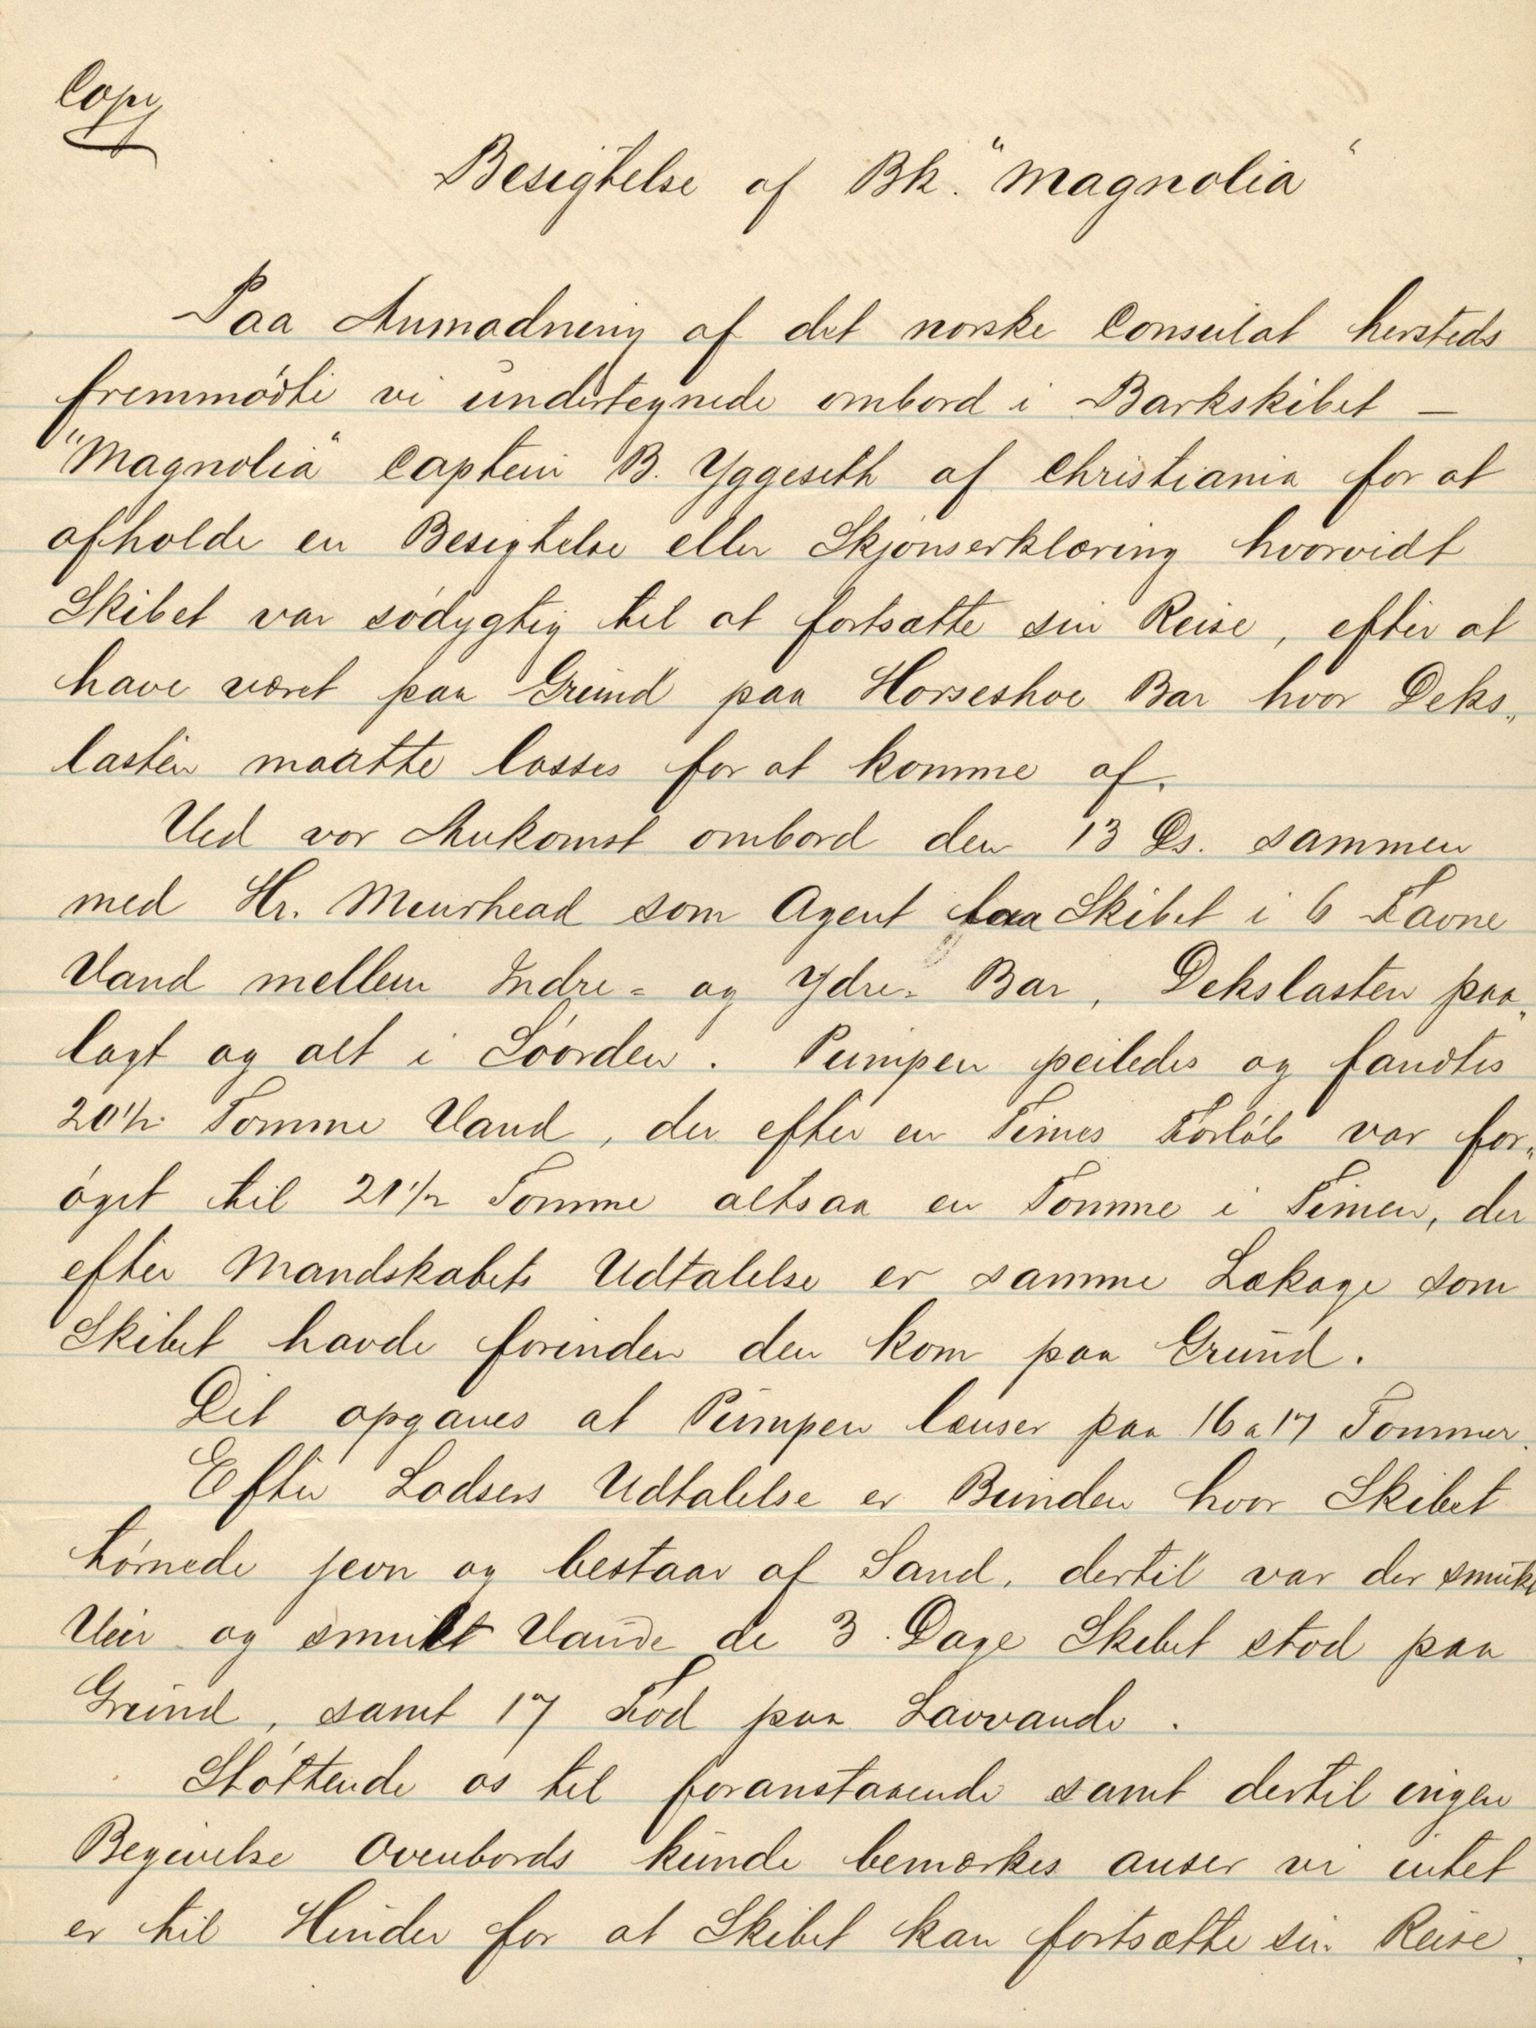 Copy
Besigtelse af Bk. "Magnolia"
Paa Anmodning af det norske Consulat hersteds
fremmødte vi undertegnede ombord i Barkskibet —
"Magnolia" Captein B. Yggeseth af Christiania for at
afholde en Besigtelse eller Skjønserklæring hvorvidt
Skibet var sødygtig til at fortsætte sin Reise, efter at
have været paa Grund paa Horseshoe Bar hvor Deks„
lasten maatte losses for at komme af.
Ved vor Ankomst ombord den 13 Ds. sammen
med Hr. Muirhead som Agent laa Skibet i 6 Favne
Vand mellem Indre= og Ydre= Bar, Dekslasten paa„
lagt og alt i Soorden. Pumpen peiledes og fandtes
20½ Tomme Vand, der efter en Times Forløb var for„
øget til 21½ Tomme altsaa en Tomme i Timen, der
efter Mandskabets Udtalelse er samme Lækage som
Skibet havde forinden den kom paa Grund.
Det opgaves at Pumpen lænser paa 16 a 17 Tommer.
Efter Lodsens Udtalelse er Bunden hvor Skibet
tørnede jevn og bestaar af Sand, dertil var der smukt
Veir og smult Vande de 3 Dage Skibet stod paa
Grund, samt 17 Fod paa Lavvande.
Støttende os til foranstaaende samt dertil ingen
Begivelse Ovenbords kunde bemærkes anser vi intet
er til Hinder for at Skibet kan fortsætte sin Reise.